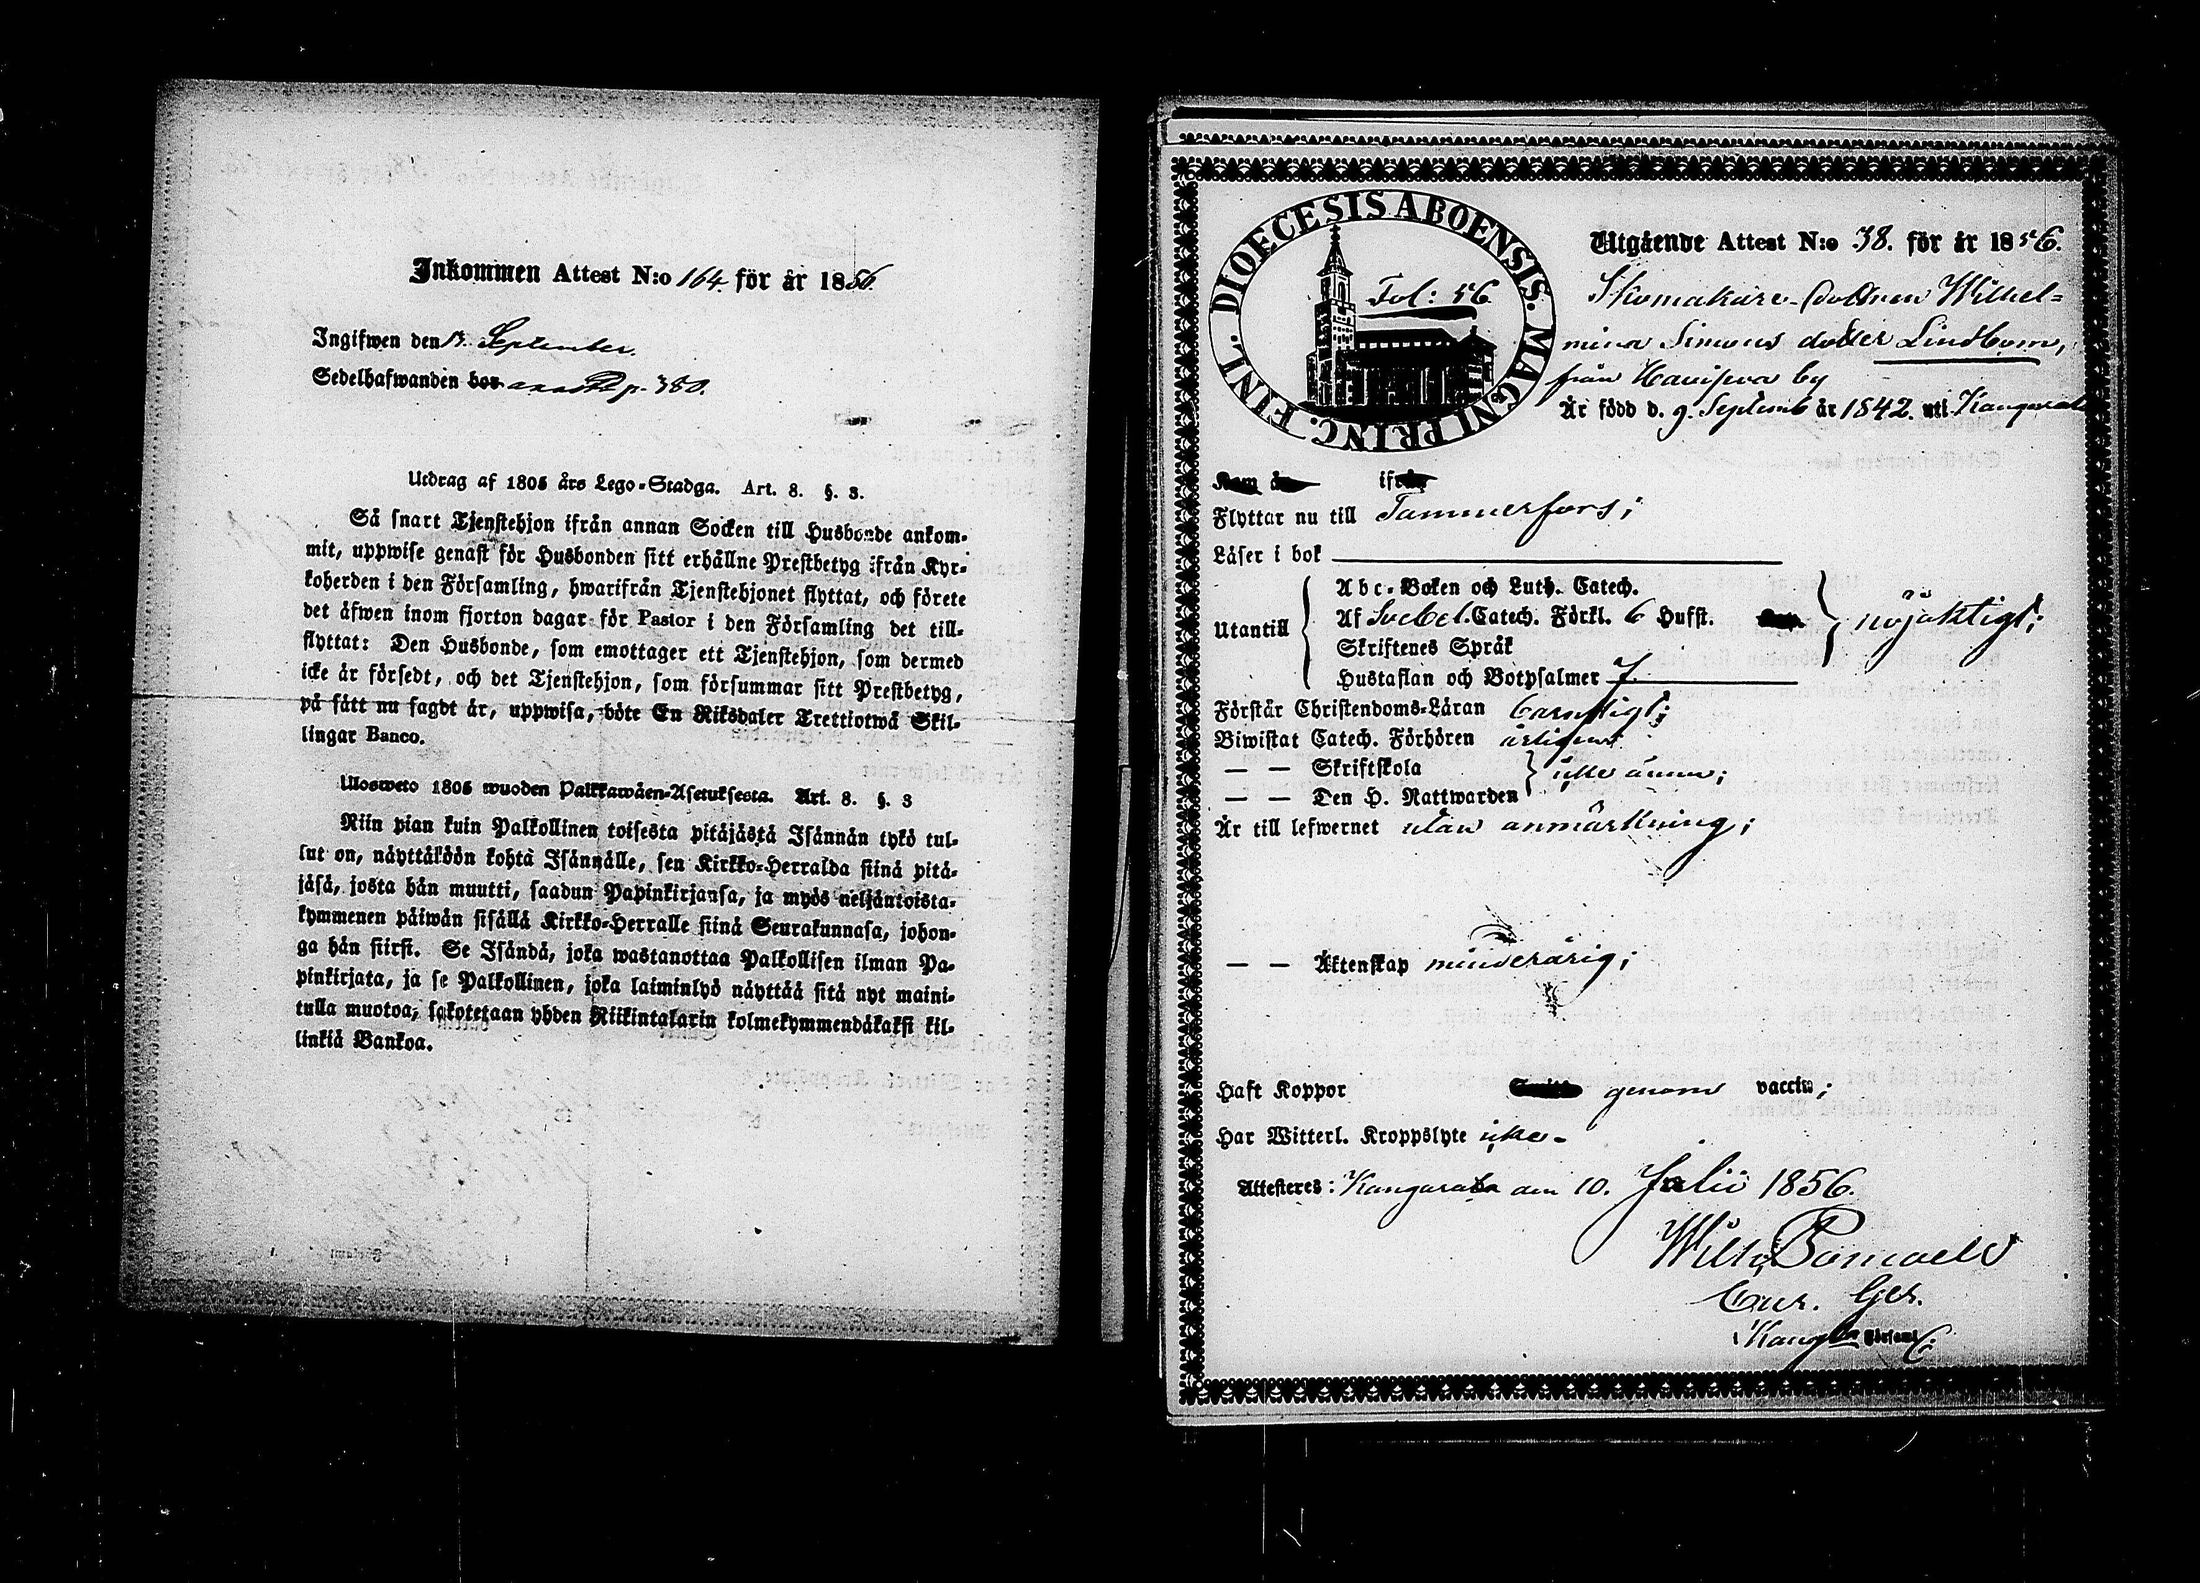 Inkommen Attest N:o 164. för år 1856.
Ingifwen den 13. September.
Sedelhafwanden bor p. 380.
Utdrag af 1805 års Lego-Stadga. Art. 8. §. 3.
Så snart Tjenstehjon ifrån annan Socken till Husbonde ankom-
mit, uppwise genast för Husbonden sitt erhållne Prestbetyg ifrån Kyr-
koherden i den Församling, hwarifrån Tjenstehjonet flyttat, och förete
det äfwen inom fjorton dagar för Pastor i den Församling det till-
flyttat: Den Husbonde, som emottager ett Tjenstehjon, som dermed
icke är försedt, och det Tjenstehjon, som försummar sitt Prestbetyg,
på sätt nu sagdt är, uppwisa, böte En Riksdaler Trettiotwå Skil-
lingar Banco.
Ulosweto 1805 wuoden Palkkawäen-Asetuksesta. Art. 8. §. 3
Niin pian kuin Palkollinen toisesta pitäjästä Isännän tykö tul-
lut on, näyttäköön kohta Isännälle, sen Kirkko-Herralda siinä pitä-
jäsä, josta hän muutti, saadun Papinkirjansa, ja myös neljäntoista-
kymmenen päiwän sisällä Kirkko-Herralle siinä Seurakunnasa, johon-
ga hän siirsi. Se Isändä, joka wastanottaa Palkollisen ilman Pa-
pinkirjata, ja se Palkollinen, joka laiminlyö näyttää sitä nyt maini-
tulla muotoa, sakotetaan yhden Riikintalarin kolmekymmendäkaksi kil-
linkiä Bankoa.
DIOECESIS ABOENSIS. MAGNI PRINC. FINL.
Fol: 56
Utgående Attest N:o 38. för år 1856.
Skomakare-dottren Wilhel-
mina Simons dotter Lindbom,
från Havisova by
Är född d. 9. Septemb år 1842. uti Kangasala
Kom år ifrån
Flyttar nu till Tammerfors;
Läser i bok
Utantill
Abc-Boken och Luth. Catech.
Af Svebel. Catech. Förkl. 6 Hufst.
Skriftenes Språk
Hustaflan och Botpsalmer 7.
nöjaktigt;
Förstår Christendoms-Läran barnsligt;
Biwistat Catech. Förhören årligen
— — Skriftskola
— — Den H. Nattwarden
icke ännu;
Är till lefwernet utan anmärkning;
— — Äktenskap minderårig;
Haft Koppor genom vaccin;
Har Witterl. Kroppslyte icke-
Attesteres: Kangasala den 10. Julii 1856.
Cur. Ger.
Kangla Församl.